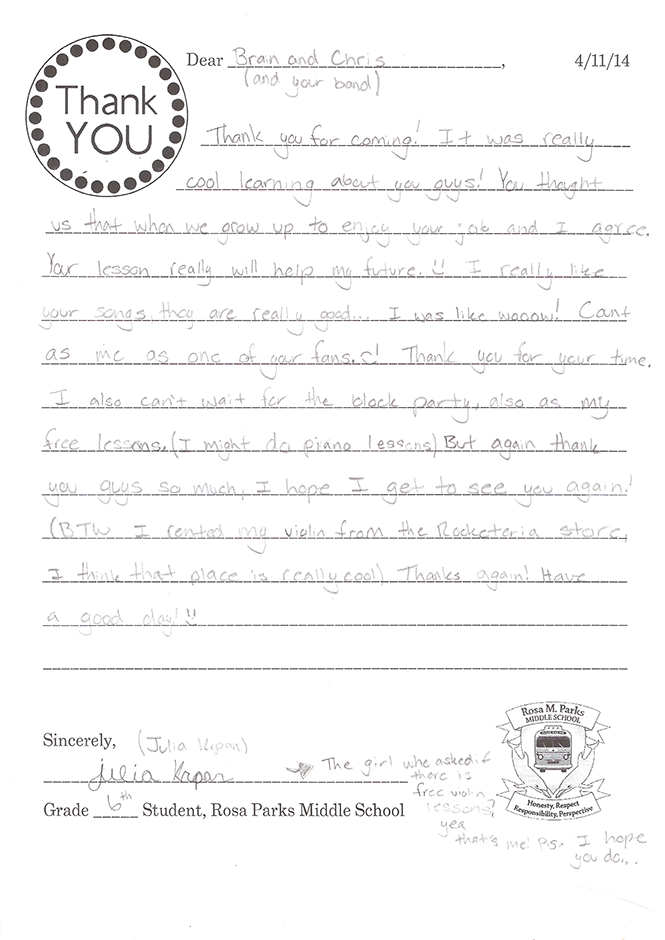 Thank
YOU
Dear Brain and Chris, 4/11/14
(and your band)
Thank you for coming! It was really
cool learning about you guys! You thought
us that when we grow up to enjoy your job and I agree.
Your lesson really will help my future. I really like
your songs, they are really good... I was like wooow! Cant
as me as one of your fans. Thank you for your time.
I also can't wait for the block party, also as my
free lessons. (I might do piano lessons) But again thank
you guys so much, I hope I get to see you again!
(BTW I rented my violin from the Rocketeria store,
I think that place is really cool) Thanks again! Have
a good day!
Sincerely, (Julia Krpan)
Julia Krpan
The girl who asked if
there is
free violin
lessons,
yea
that's me! P.S. I hope
you do...
Grade 6th Student, Rosa Parks Middle School
Rosa M. Parks
MIDDLE SCHOOL
Honesty, Respect
Responsibility, Perspective